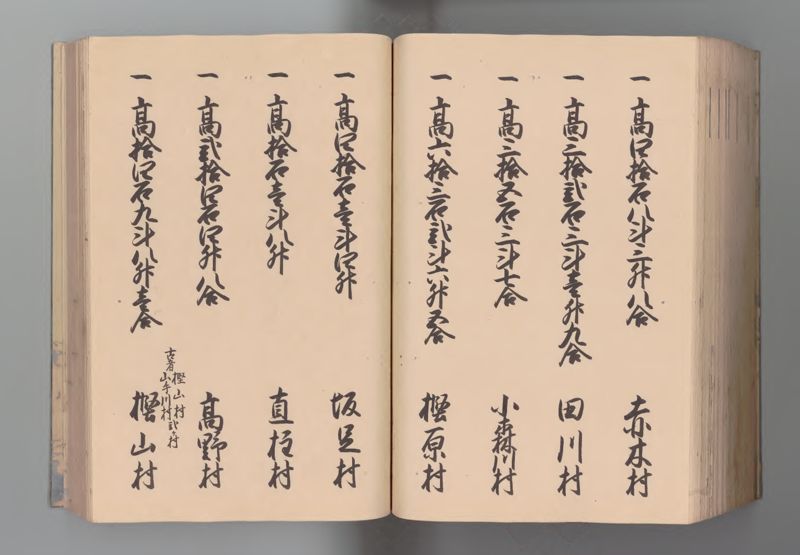 一高四拾石八斗三升八合 赤木村
一高三拾弐石三斗壱升九合 田川村
一高三拾五石三斗七合 小森川村
一高六拾三石弐斗六升五合 樫原村
一高四拾石壱斗四升 坂足村
一高拾石壱斗八升 直柱村
一高弐拾四石四升八合 高野村
古者樫山村
山手川村弐ケ村
一高拾四石九斗八升壱合 樫山村